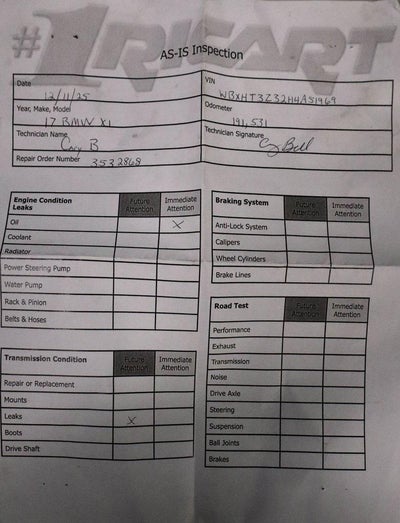 #1 RICART
AS-IS Inspection
Date 12/11/25
VIN WBXHT3Z32H4A51969
Year, Make, Model 17 BMW X1
Odometer 191,531
Technician Name Cory B
Technician Signature
Repair Order Number 3532868
Engine Condition
Leaks
Future Attention
Immediate Attention
Oil X
Coolant
Radiator
Power Steering Pump
Water Pump
Rack & Pinion
Belts & Hoses
Transmission Condition
Future Attention
Immediate Attention
Repair or Replacement
Mounts
Leaks X
Boots
Drive Shaft
Braking System
Future Attention
Immediate Attention
Anti-Lock System
Calipers
Wheel Cylinders
Brake Lines
Road Test
Future Attention
Immediate Attention
Performance
Exhaust
Transmission
Noise
Drive Axle
Steering
Suspension
Ball Joints
Brakes